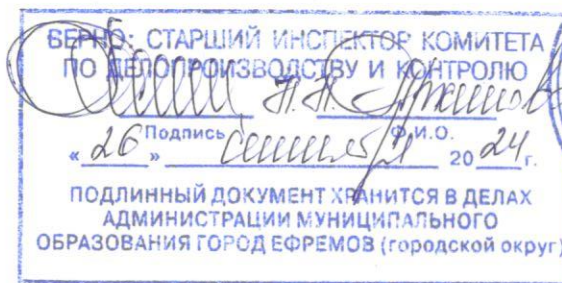 ВЕРНО: СТАРШИЙ ИНСПЕКТОР КОМИТЕТА
ПО ДЕЛОПРОИЗВОДСТВУ И КОНТРОЛЮ
Н.Н.
Подпись Ф.И.О.
« 26 » сентября 20 24 г.
ПОДЛИННЫЙ ДОКУМЕНТ ХРАНИТСЯ В ДЕЛАХ
АДМИНИСТРАЦИИ МУНИЦИПАЛЬНОГО
ОБРАЗОВАНИЯ ГОРОД ЕФРЕМОВ (городской округ)